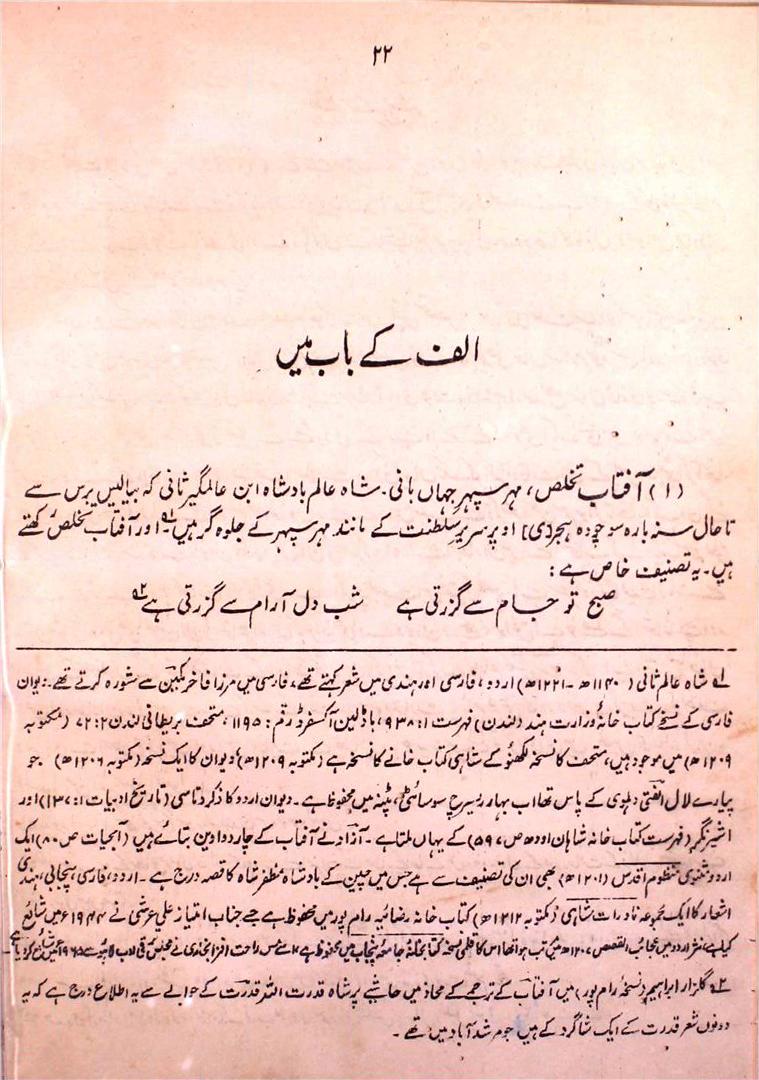 ۲۲
الف کے باب میں
(۱) آفتاب تخلص، مہرِ سپہرِ جہاں بانی۔ شاہ عالم بادشاہ ابن عالمگیر ثانی کہ بیالیس برس سے
تا حال سنہ بارہ سو چودہ ہجر[دی] اوپر سریرِ سلطنت کے مانند مہر سپہر کے جلوہ گر ہیں۔ اور آفتاب تخلص رکھتے
ہیں۔ یہ تصنیف خاص ہے:
صبح تو جام سے گزرتی ہے شب دل آرام سے گزرتی ہے
۱؎ شاہ عالم ثانی (۱۱۴۰ھ - ۱۲۲۱ھ) اردو، فارسی اور ہندی میں شعر کہتے تھے، فارسی میں مرزا فاخر مکیں سے مشورہ کرتے تھے۔ دیوان
فارسی کے نسخے کتاب خانۂ وزارت ہند (لندن) فہرست ۱: ۹۳۸، باڈلین آکسفرڈ رقم: ۱۱۹۵، متحف بریطانی لندن ۲: ۷۲ (مکتوبہ
۱۲۰۹ھ) میں موجود ہیں، متحف کا نسخہ لکھنؤ کے شاہی کتاب خانے کا نسخہ ہے (مکتوبہ ۱۲۰۹ھ) دیوان کا ایک نسخہ (مکتوبہ ۱۲۰۶ھ) جو
پیارے لال الفتی دہلوی کے پاس تھا اب بہار ریسرچ سوسائٹی، پٹنہ میں محفوظ ہے۔ دیوان اردو کا ذکر دتاسی (تاریخ ادبیات ۱: ۱۳۷) اور
اشپرنگر (فہرست کتاب خانہ شاہان اودھ ص ۵۹۷) کے یہاں ملتا ہے۔ آزاد نے آفتاب کے چار دواوین بتائے ہیں (آبحیات ص ۸۰) ایک
اردو مثنوی منظوم اقدس (۱۲۰۱ھ) بھی ان کی تصنیف سے ہے جس میں چین کے بادشاہ مظفر شاہ کا قصہ درج ہے۔ اردو، فارسی، پنجابی، ہندی
اشعار کا ایک مجموعہ نادرات شاہی (مکتوبہ ۱۲۱۲ھ) کتاب خانہ رضائیہ رام پور میں محفوظ ہے جسے جناب امتیاز علی عرشی نے ۱۹۴۴ء میں شائع
کیا ہے، نثر اردو میں عجائب القصص ۱۲۰۷ھ میں مرتب ہوا تھا اس کا قلمی نسخہ کتابخانہ جامعہ پنجاب میں محفوظ ہے راحت افزا بخاری نے مجلس ترقی ادب لاہور سے ۱۹۶۵ء میں شائع کر دیا ہے
۲؎ گلزار ابراہیم (نسخہ رام پور) میں آفتاب کے ترجمے کے محاذ میں حاشیے پر شاہ قدرت اللہ قدرت کے حوالے سے یہ اطلاع درج ہے کہ یہ
دونوں شعر قدرت کے ایک شاگرد کے ہیں جو مرشدآباد میں تھے۔